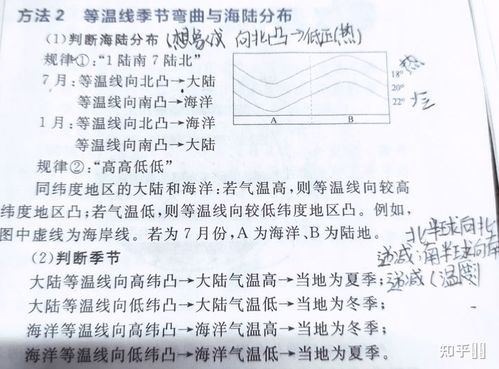 方法2 等温线季节弯曲与海陆分布
(1)判断海陆分布
向北凸→低正(热)
规律①:“1陆南7陆北”
7月:等温线向北凸→大陆
等温线向南凸→海洋
1月:等温线向北凸→海洋
等温线向南凸→大陆
热
18°
20°
22°
A B
规律②:“高高低低”
同纬度地区的大陆和海洋:若气温高,则等温线向较高
纬度地区凸;若气温低,则等温线向较低纬度地区凸。例如,
图中虚线为海岸线。若为7月份,A为海洋、B为陆地。
北半球向北
递减,南半球向南
递减(温度)
(2)判断季节
大陆等温线向高纬凸→大陆气温高→当地为夏季;
大陆等温线向低纬凸→大陆气温低→当地为冬季;
海洋等温线向高纬凸→海洋气温高→当地为冬季;
海洋等温线向低纬凸→海洋气温低→当地为夏季。
知乎